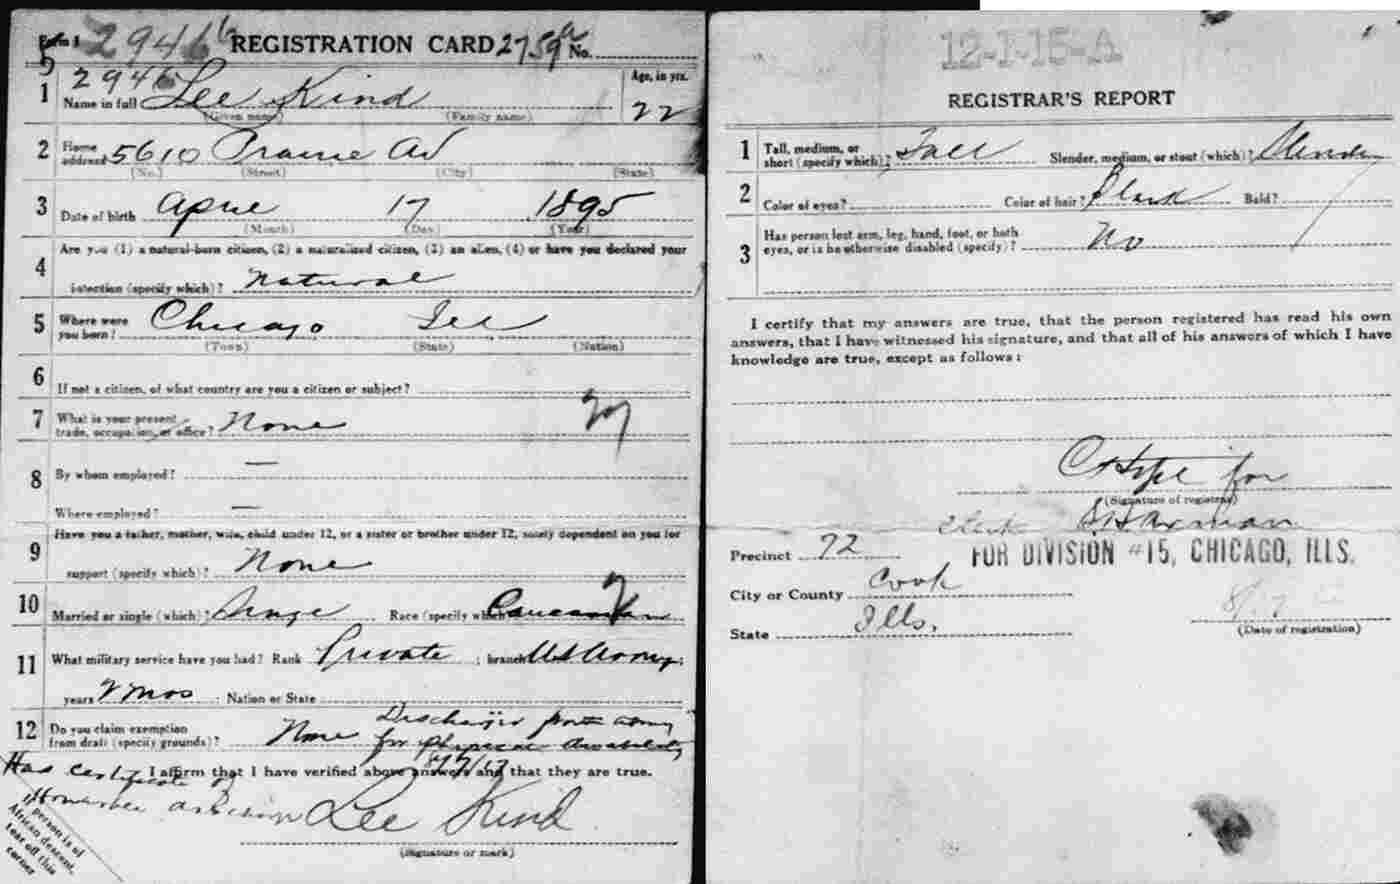 Form 1 29466 REGISTRATION CARD 2759 No.
5
2946
1 Name in full Lee Kind Age, in yrs. 22
(Given name) (Family name)
2 Home address 5610 Prairie Av
(No.) (Street) (City) (State)
3 Date of birth April 17 1895
(Month) (Day) (Year)
4 Are you (1) a natural-born citizen, (2) a naturalized citizen, (3) an alien, (4) or have you declared your
intention (specify which)? Natural
5 Where were you born? Chicago Ill
(Town) (State) (Nation)
6 If not a citizen, of what country are you a citizen or subject?
7 What is your present trade, occupation, or office? None
8 By whom employed? —
Where employed? —
9 Have you a father, mother, wife, child under 12, or a sister or brother under 12, solely dependent on you for
support (specify which)? None
10 Married or single (which)? Single Race (specify which) Caucasian
11 What military service have you had? Rank Private ; branch US Army ;
years 2 mos ; Nation or State
12 Do you claim exemption from draft (specify grounds)? None Discharged from army
for physical disability
Has certificate of I affirm that I have verified above answers and that they are true.
Honorable Lee Kind
(Signature or mark)
If person is of
African descent,
tear off this
corner
12-1-15-A
REGISTRAR'S REPORT
1 Tall, medium, or short (specify which)? Tall Slender, medium, or stout (which)? Slender
2 Color of eyes? Color of hair? Black Bald?
3 Has person lost arm, leg, hand, foot, or both
eyes, or is he otherwise disabled (specify)? No
I certify that my answers are true, that the person registered has read his own
answers, that I have witnessed his signature, and that all of his answers of which I have
knowledge are true, except as follows:
for
(Signature of registrar)
Clerk
Precinct 72 FOR DIVISION #15, CHICAGO, ILLS.
City or County Cook
State Ills.
(Date of registration)